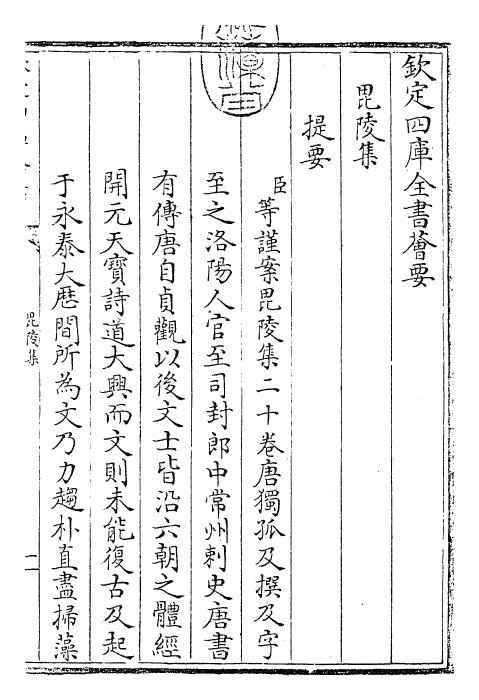 欽定四庫全書薈要
毘陵集
提要
臣等謹案毘陵集二十卷唐獨孤及撰及字
至之洛陽人官至司封郎中常州刺史唐書
有傳唐自貞觀以後文士皆沿六朝之體經
開元天寶詩道大興而文則未能復古及起
于永泰大厯間所為文乃力趨朴直盡掃藻
毘陵集
一